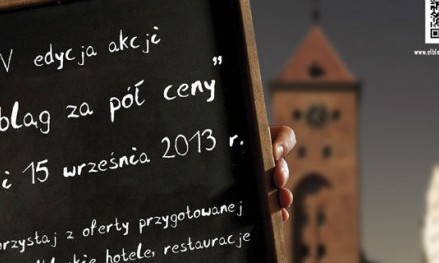 V edycja akcji
bląg za pół ceny"
i 15 września 2013 r.
orzystaj z oferty przygotowanej
hotele, restauracje
www.elblą